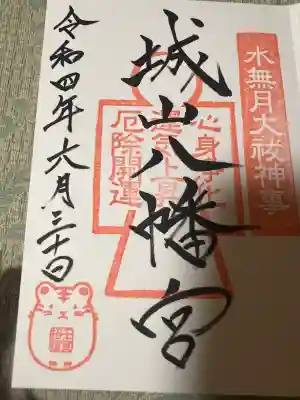 水無月大祓神事
城山八幡宮
心身浄化
運気上昇
厄除開運
令和四年六月三十日